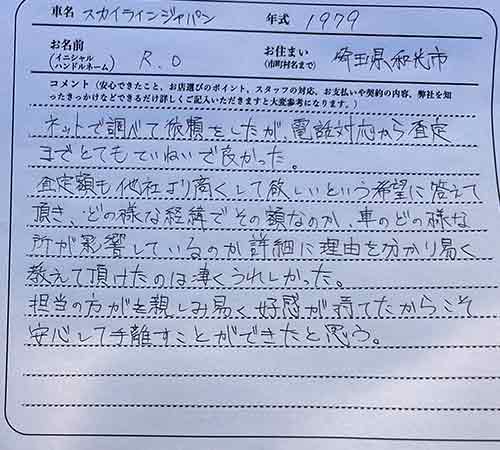 車名 スカイラインジャパン 年式 1979
お名前 (イニシャル ハンドルネーム) R.O お住まい (市町村名まで) 埼玉県和光市
コメント (安心できたこと、お店選びのポイント、スタッフの対応、お支払いや契約の内容、弊社を知
ったきっかけなどできるだけ詳しくご記入いただきますと大変参考になります。)
ネットで調べて依頼をしたが、電話対応から査定
までとてもていねいで良かった。
査定額も他社より高くして欲しいという希望に答えて
頂き、どの様な経緯でその額なのか、車のどの様な
所が影響しているのか詳細に理由を分かり易く
教えて頂けたのは凄くうれしかった。
担当の方がも親しみ易く好感が持てたからこそ
安心して手離すことができたと思う。